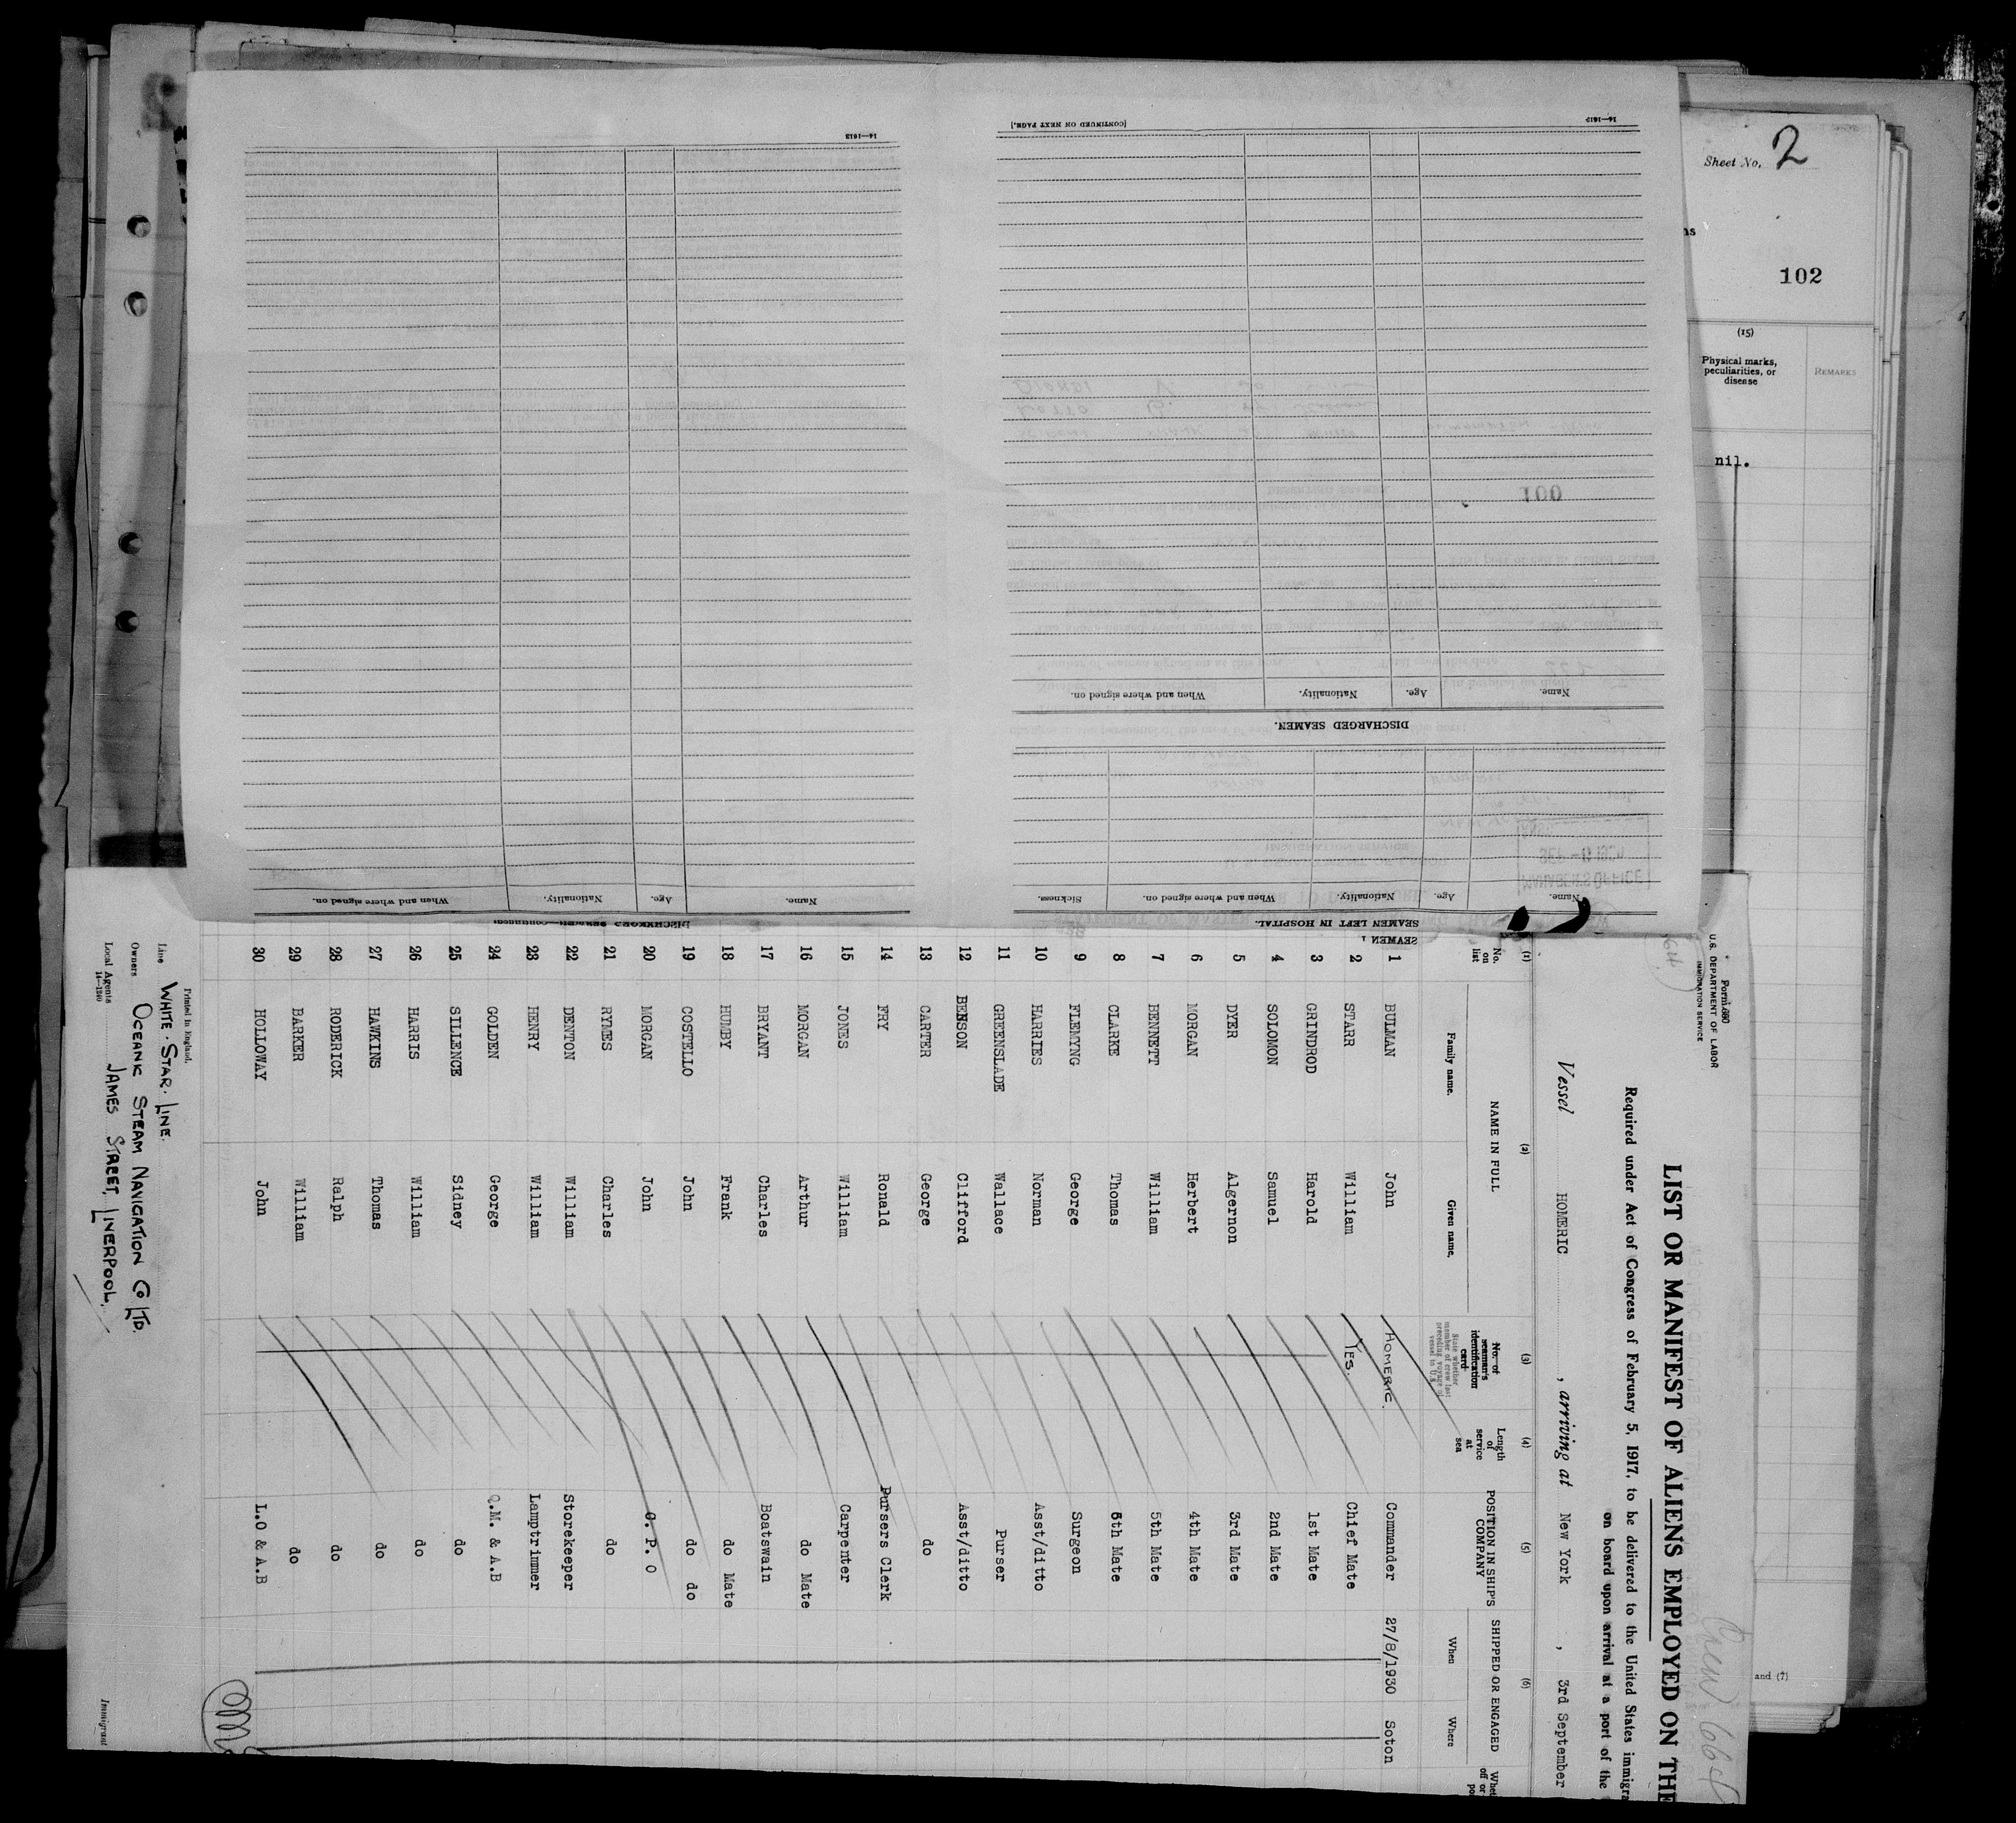 14—1613
When and where signed on.
Nationality.
Age.
Name.
DISCHARGED SEAMEN—continued.
[CONTINUED ON NEXT PAGE.]
14—1613
When and where signed on.
Nationality.
Age.
Name.
DISCHARGED SEAMEN.
100
Sickness.
When and where signed on.
Nationality.
Age.
Name.
SEAMEN LEFT IN HOSPITAL.
SEAMEN
Sheet No. 2
102
(15)
Physical marks, peculiarities, or disease
REMARKS
nil.
and (7)
Crew 664
Form 680
U.S. DEPARTMENT OF LABOR
IMMIGRATION SERVICE
LIST OR MANIFEST OF ALIENS EMPLOYED ON THE
Required under Act of Congress of February 5, 1917, to be delivered to the United States immigra
on board upon arrival at a port of the
Vessel HOMERIC , arriving at New York , 3rd September
(1) (2) (3) (4) (5) (6)
No. on list
NAME IN FULL
Family name. Given name.
No. of seaman's identification card
State whether member of crew last preceding voyage of vessel to U.S.
Length of service at sea
POSITION IN SHIP'S COMPANY
SHIPPED OR ENGAGED
When Where
1 BULMAN John HOMERIC. Commander 27/8/1930 Soton
2 STARR William YES. Chief Mate
3 GRINDROD Harold 1st Mate
4 SOLOMON Samuel 2nd Mate
5 DYER Algernon 3rd Mate
6 MORGAN Herbert 4th Mate
7 BENNETT William 5th Mate
8 CLARKE Thomas 6th Mate
9 FLEMYNG George Surgeon
10 HARRIES Norman Asst/ditto
11 GREENSLADE Wallace Purser
12 BENSON Clifford Asst/ditto
13 CARTER George do
14 FRY Ronald Pursers Clerk
15 JONES William Carpenter
16 MORGAN Arthur do Mate
17 BRYANT Charles Boatswain
18 HUMBY Frank do Mate
19 COSTELLO John do do
20 MORGAN John G. P. O
21 RYMES Charles do
22 DENTON William Storekeeper
23 HENRY William Lamptrimmer
24 GOLDEN George Q.M. & A.B
25 SILLENCE Sidney do
26 HARRIS William do
27 HAWKINS Thomas do
28 RODERICK Ralph do
29 BARKER William do
30 HOLLOWAY John L.O & A.B
Printed in England.
Line WHITE·STAR·LINE.
Owners OCEANIC STEAM NAVIGATION Co LTD.
Local Agents JAMES STREET, LIVERPOOL.
14—1240
Immigrant